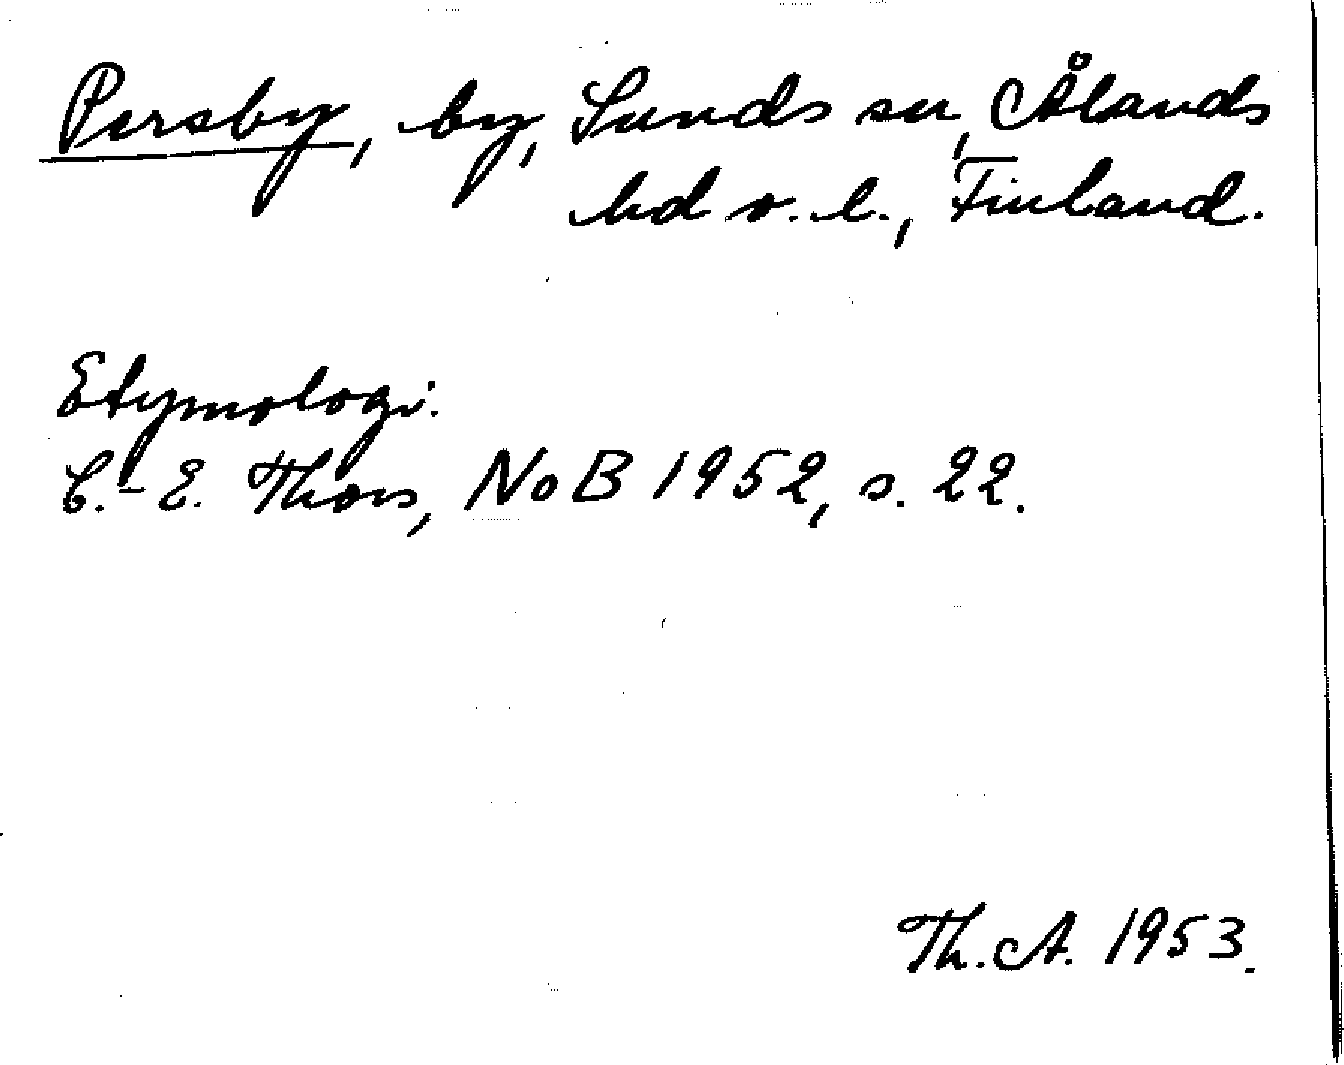 Persby, by, Sunds sn, Ålands
hd o. l., Finland.
Etymologi:
C.-E. Thors, NoB 1952, s. 22.
Th. A. 1953.